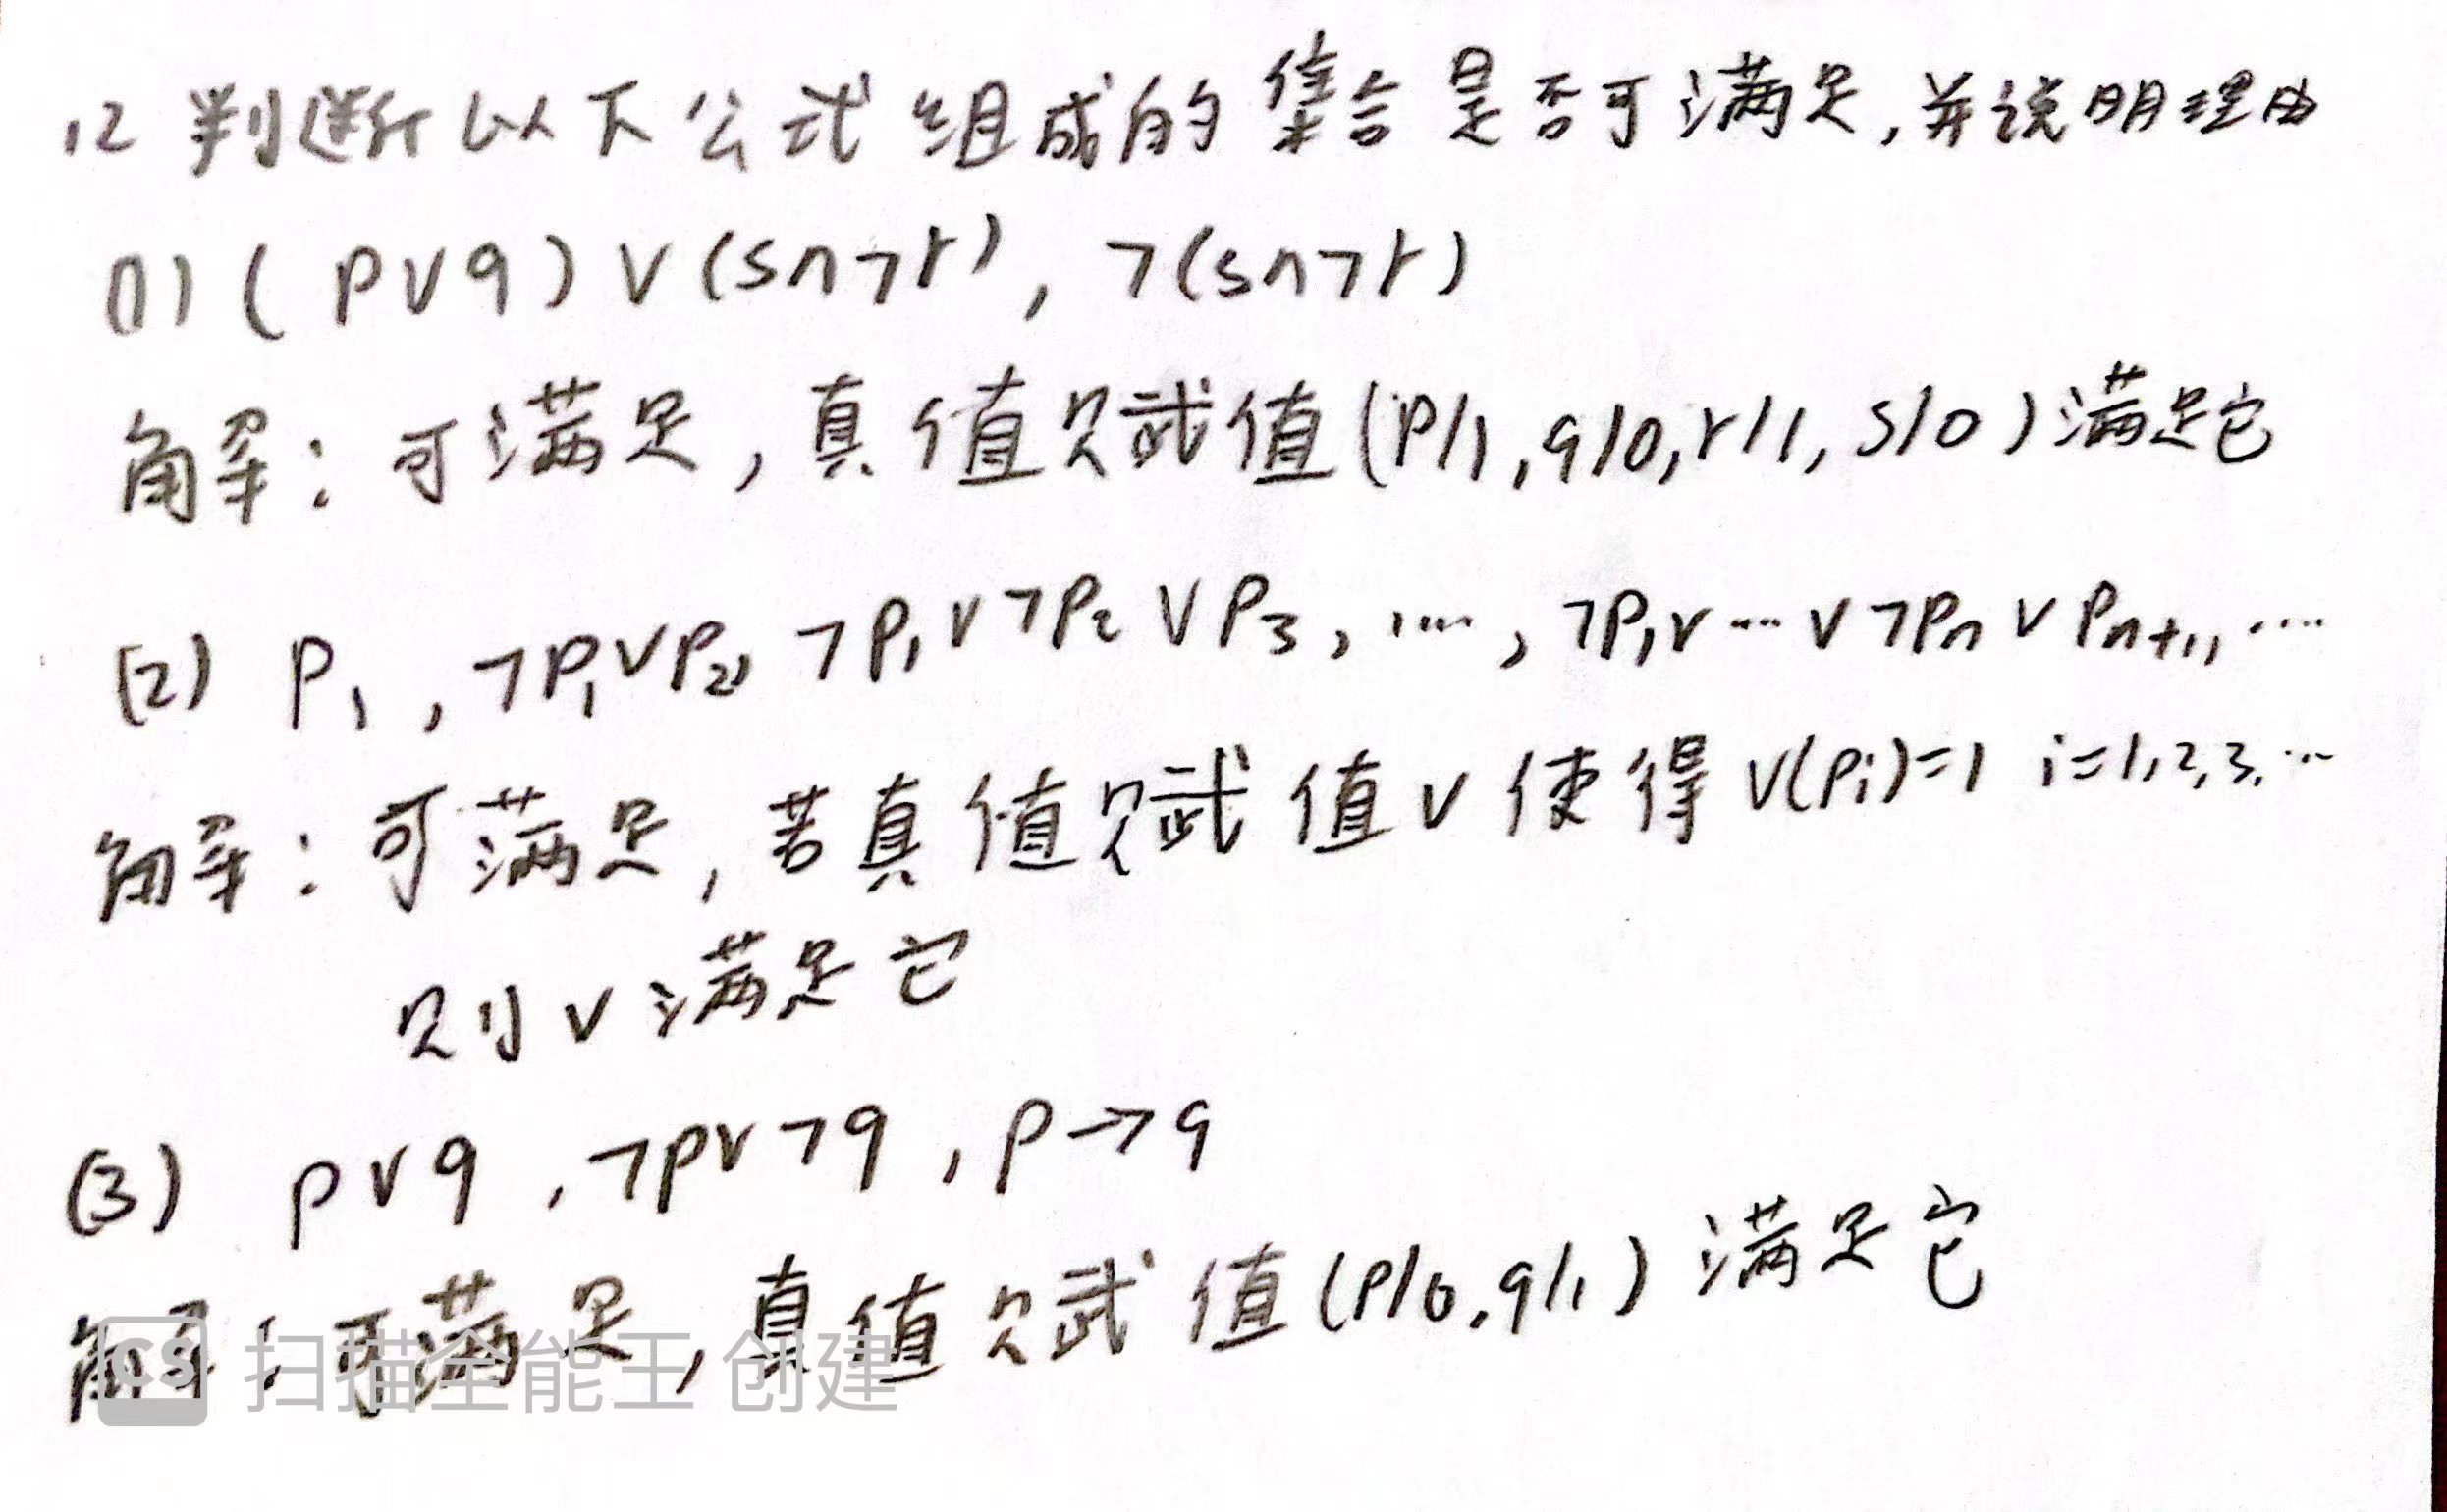 12 判断以下公式组成的集合是否可满足,并说明理由
(1) (p∨q)∨(s∧¬r), ¬(s∧¬r)
解:可满足,真值赋值(p/1,q/0,r/1,s/0)满足它
(2) P₁, ¬P₁∨P₂, ¬P₁∨¬P₂∨P₃, …, ¬P₁∨…∨¬Pₙ∨Pₙ₊₁, …
解:可满足,若真值赋值v使得v(Pi)=1 i=1,2,3,…
则v满足它
(3) p∨q, ¬p∨¬q, p→q
解:可满足,真值赋值(p/0,q/1)满足它
CS 扫描全能王 创建